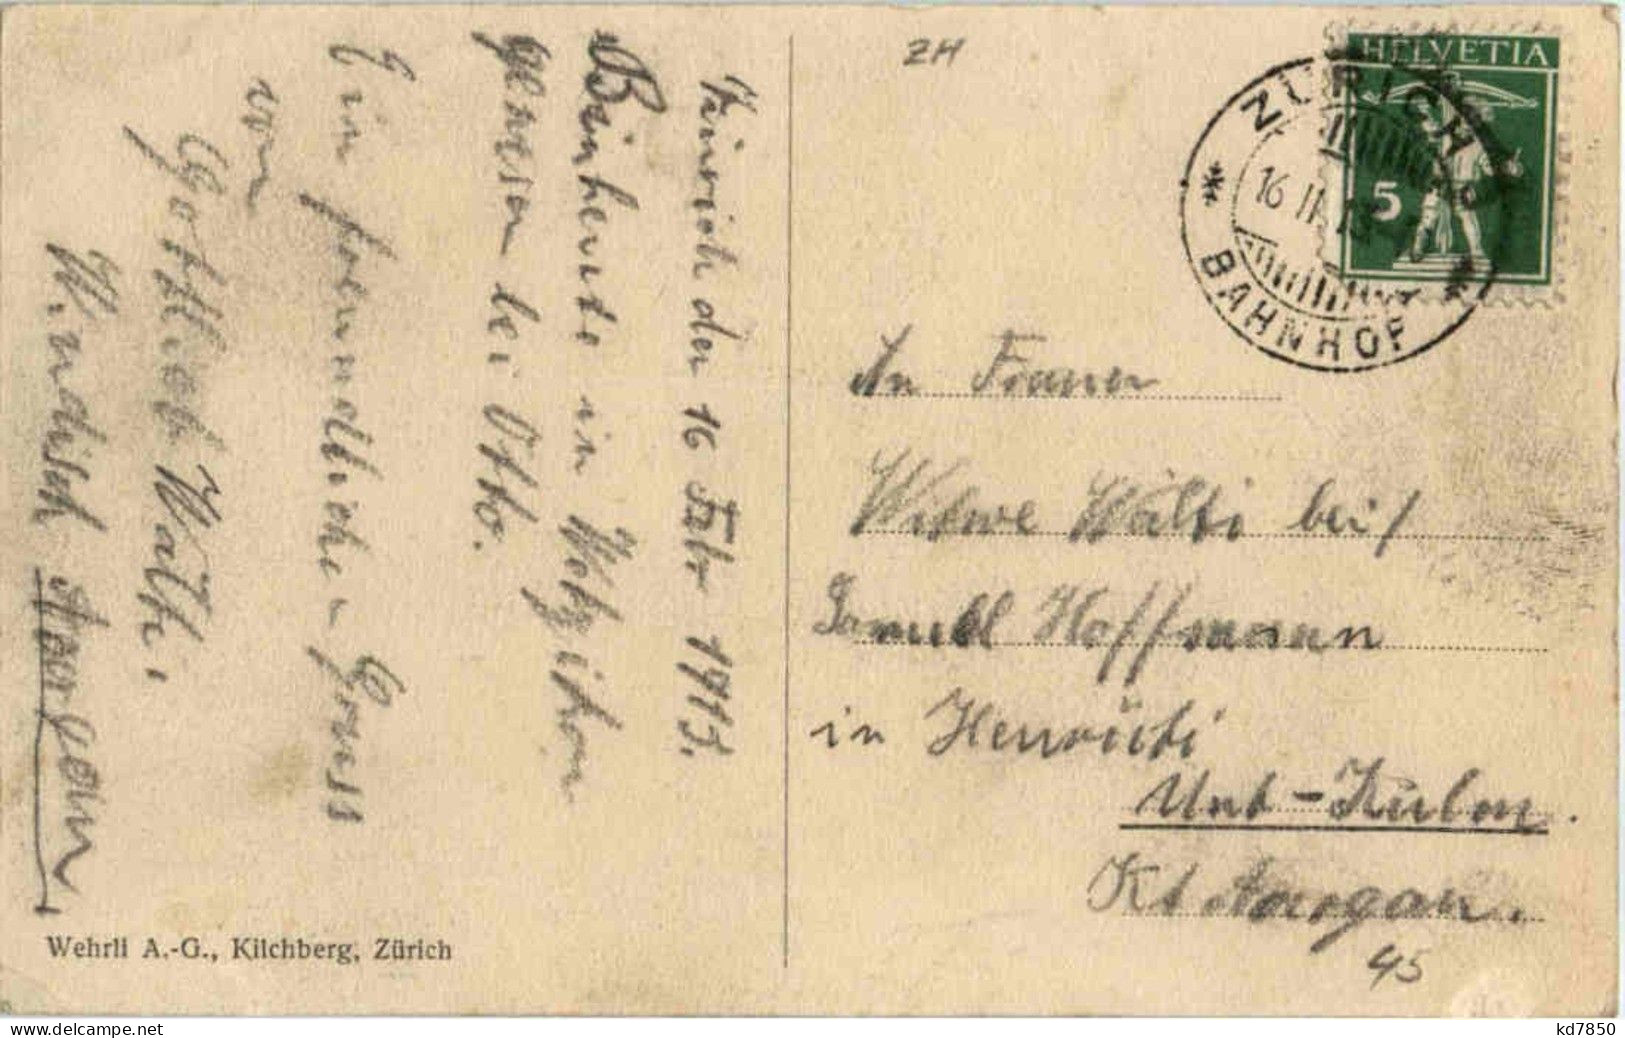 ZH
HELVETIA
5
ZÜRICH
16 II 13
BAHNHOF
Zürich den 16 Febr 1913.
Bin heute in Wetzikon
gewesen bei Otto.
Ein freundlichen Gruss
von
Gottlieb Wälti.
Windisch Aargau
An Frauen
Witwe Wälti bei
Samuel Hoffmann
in
Unt-Kulm.
Kt Aargau.
45
Wehrli A.-G., Kilchberg, Zürich
kd7850